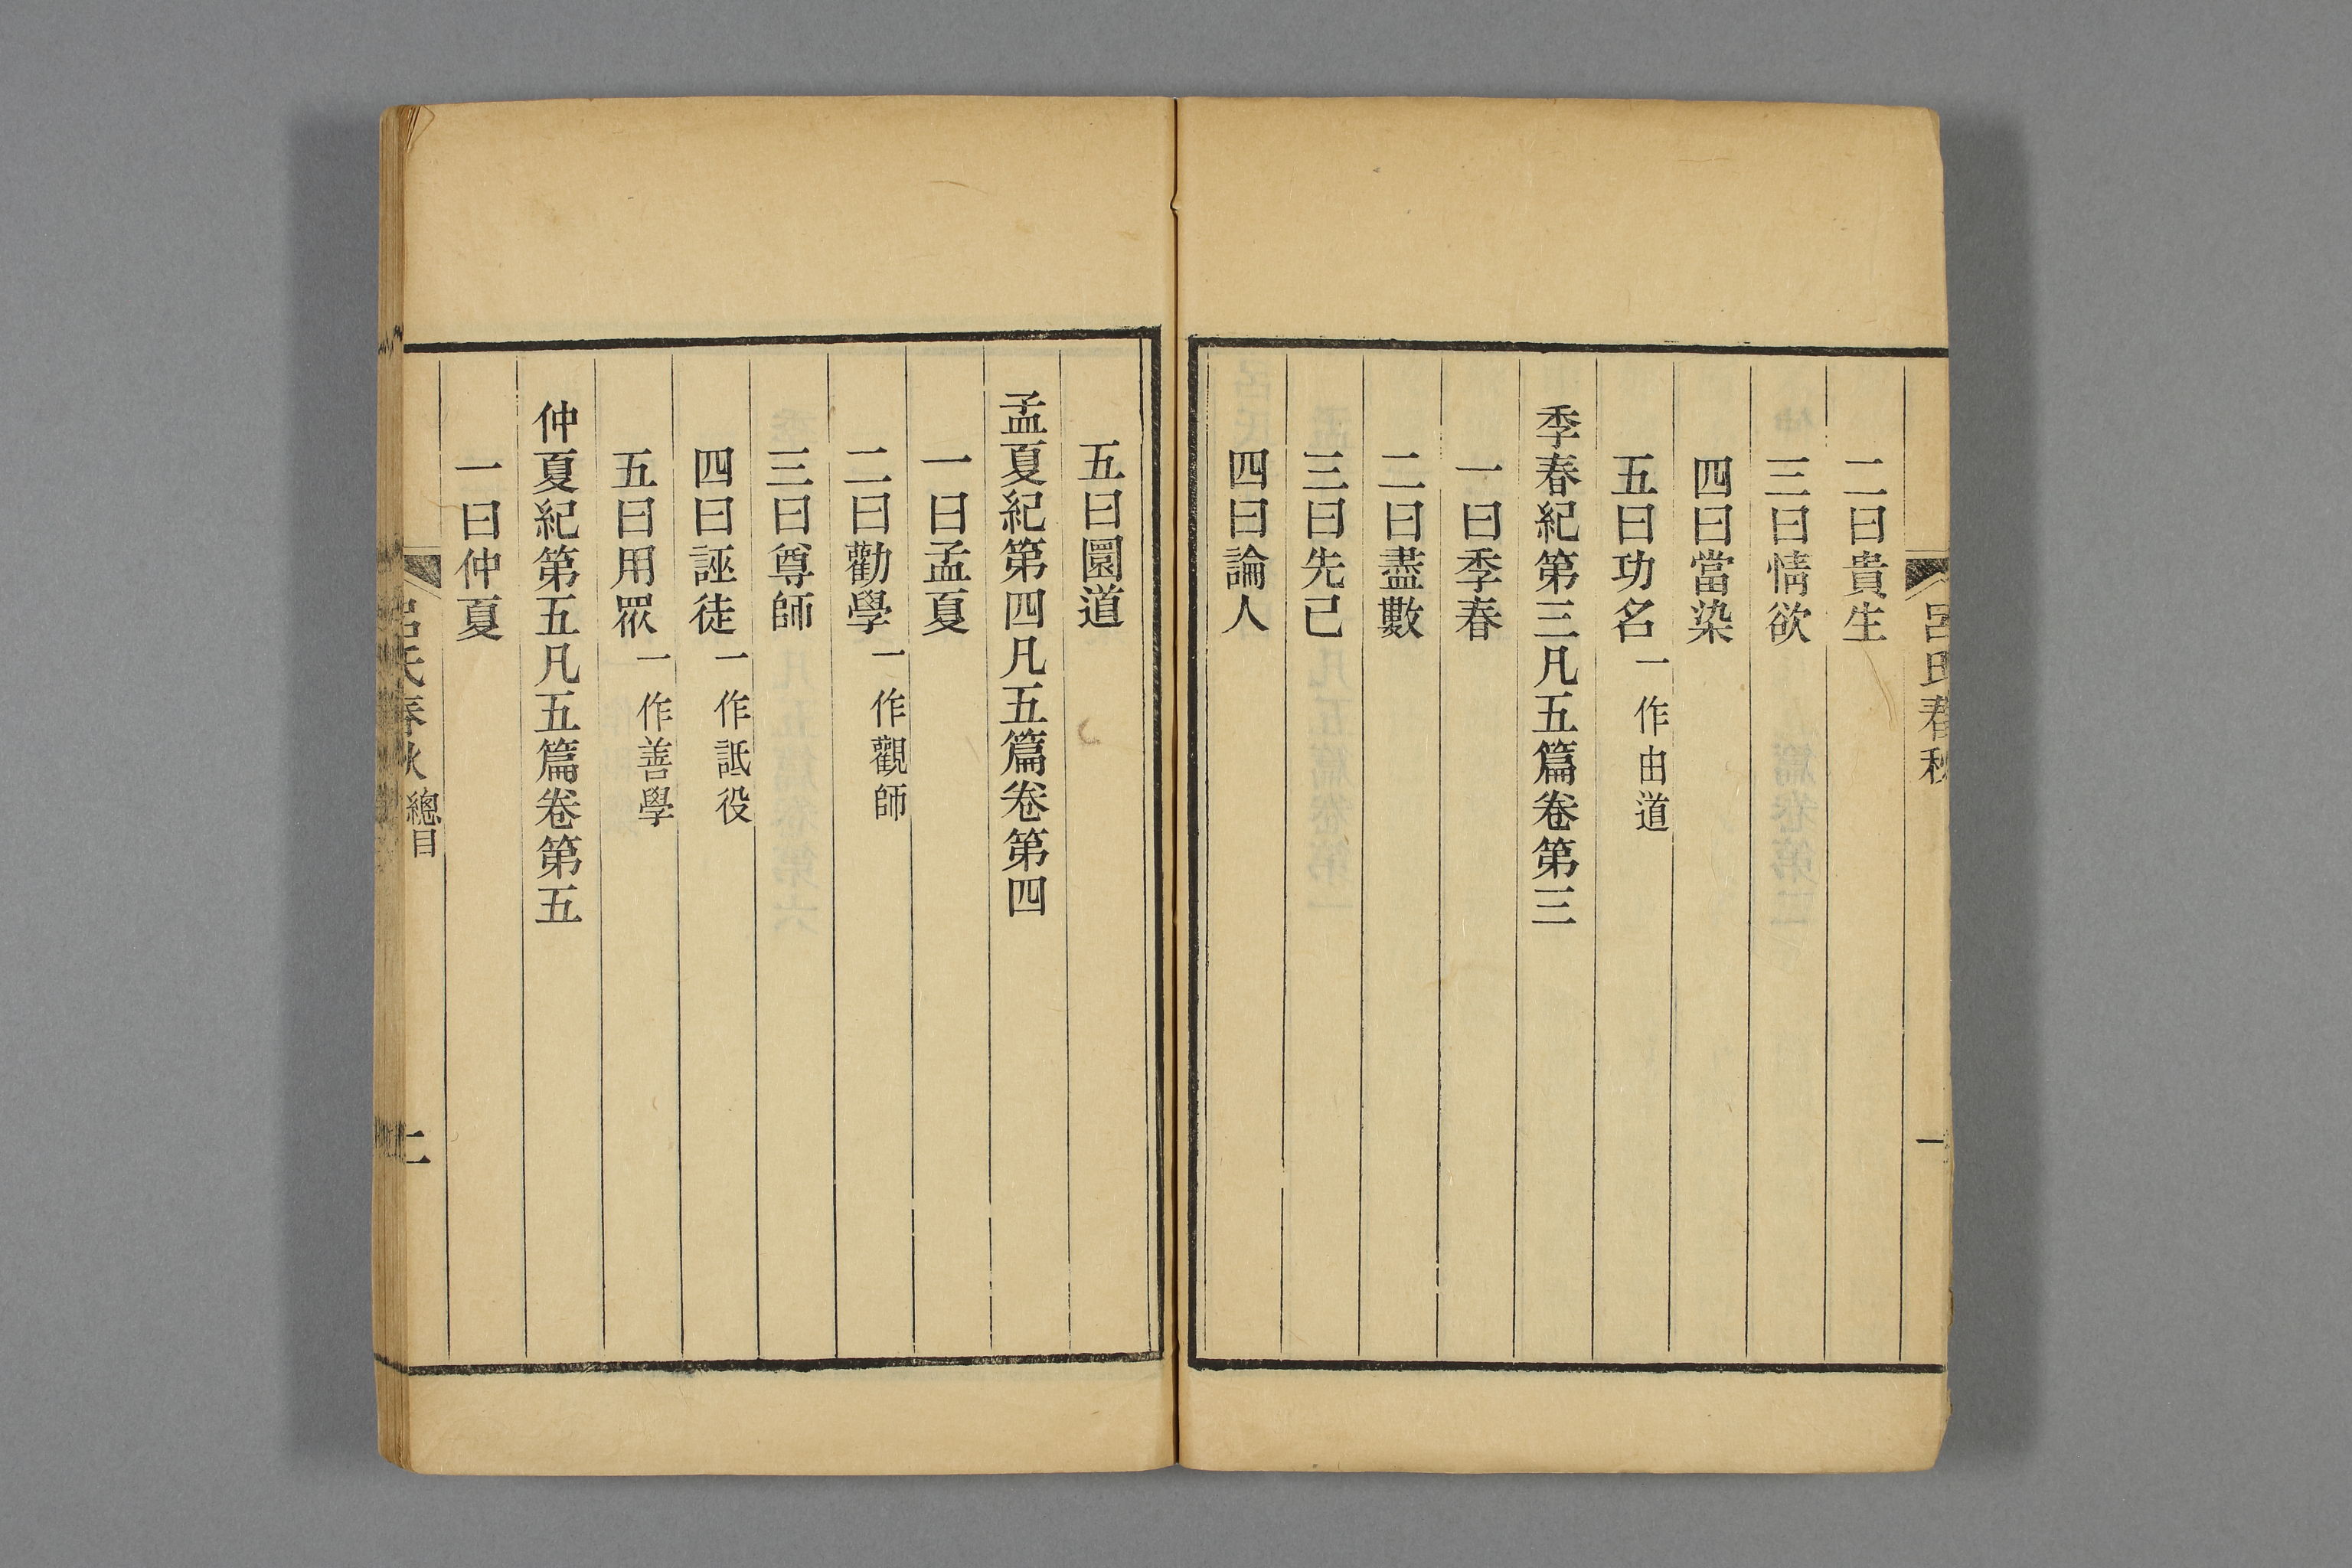 呂氏春秋 一
二曰貴生
三曰情欲
四曰當染
五曰功名 一作由道
季春紀第三凡五篇卷第三
一曰季春
二曰盡數
三曰先己
四曰論人
五曰圜道
孟夏紀第四凡五篇卷第四
一曰孟夏
二曰勸學 一作觀師
三曰尊師
四曰誣徒 一作詆役
五曰用眾 一作善學
仲夏紀第五凡五篇卷第五
一曰仲夏
呂氏春秋 總目 二